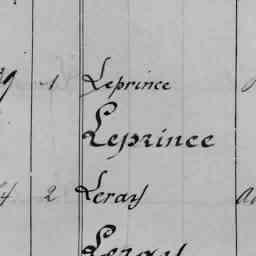 1 Leprince
Leprince
2 Leray
Leray